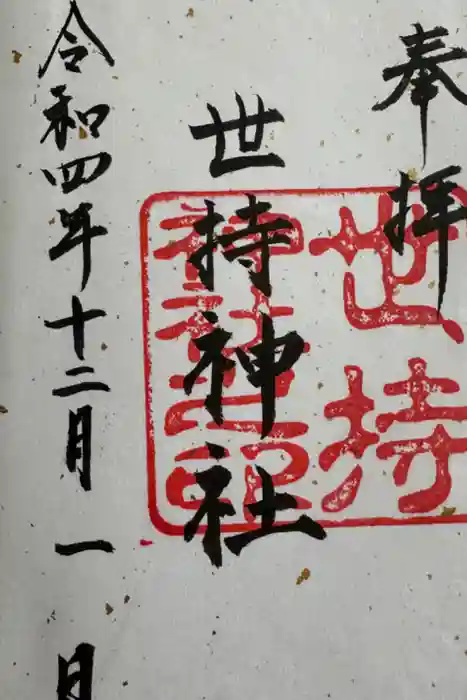 奉拝
世持
神社
世持神社
令和四年十二月一日